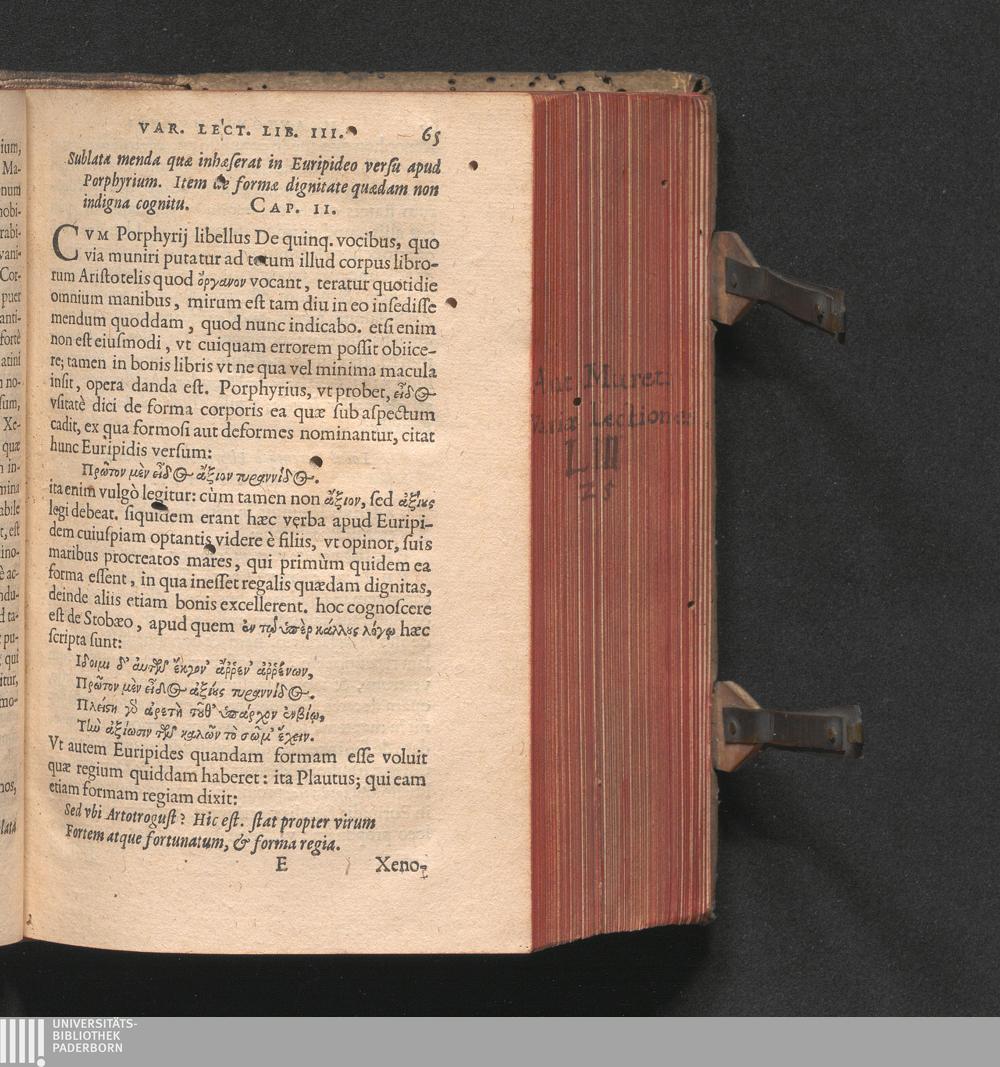 VAR. LECT. LIB. III. 65
Sublata menda quæ inhæserat in Euripideo versu apud
Porphyrium. Item de formæ dignitate quædam non
indigna cognitu. CAP. II.
CVM Porphyrij libellus De quinq. vocibus, quo
via muniri putatur ad totum illud corpus libro-
rum Aristotelis quod ὄργανον vocant, teratur quotidie
omnium manibus, mirum est tam diu in eo insedisse
mendum quoddam, quod nunc indicabo. etsi enim
non est eiusmodi, vt cuiquam errorem possit obiice-
re; tamen in bonis libris vt ne qua vel minima macula
insit, opera danda est. Porphyrius, vt probet, εἶδος
vsitatè dici de forma corporis ea quæ sub aspectum
cadit, ex qua formosi aut deformes nominantur, citat
hunc Euripidis versum:
Πρῶτον μὲν εἶδος ἄξιον τυραννίδος.
ita enim vulgò legitur: cùm tamen non ἄξιον, sed ἀξίας
legi debeat. siquidem erant hæc verba apud Euripi-
dem cuiuspiam optantis videre è filiis, vt opinor, suis
maribus procreatos mares, qui primùm quidem ea
forma essent, in qua inesset regalis quædam dignitas,
deinde aliis etiam bonis excellerent. hoc cognoscere
est de Stobæo, apud quem ἐν τῷ ὑπὲρ κάλλους λόγῳ hæc
scripta sunt:
Ἴδοιμι δ' αὐτῶν ἔκγον' ἄῤῥεν' ἀῤῥένων,
Πρῶτον μὲν εἶδος ἀξίας τυραννίδος.
Πλείστη γὰρ ἀρετὴ τοῦθ' ὑπάρχον ἐν βίῳ,
Τὴν ἀξίωσιν τῶν καλῶν τὸ σῶμ' ἔχειν.
Vt autem Euripides quandam formam esse voluit
quæ regium quiddam haberet: ita Plautus; qui eam
etiam formam regiam dixit:
Sed vbi Artotrogust? Hic est. stat propter virum
Fortem atque fortunatum, & forma regia.
E Xeno-
ium,
Ma-
num
nobi-
rabi-
vani-
Cor-
puer
anti-
fortè
atini
n no-
sum,
Xe-
quæ
n in-
mina
abile
t, est
ino-
è ac-
ndu-
d ta-
pu-
qui
itur,
mo-
nos,
lata
Ant. Muret.
Variæ Lectiones
LIII
25
UNIVERSITÄTS-
BIBLIOTHEK
PADERBORN